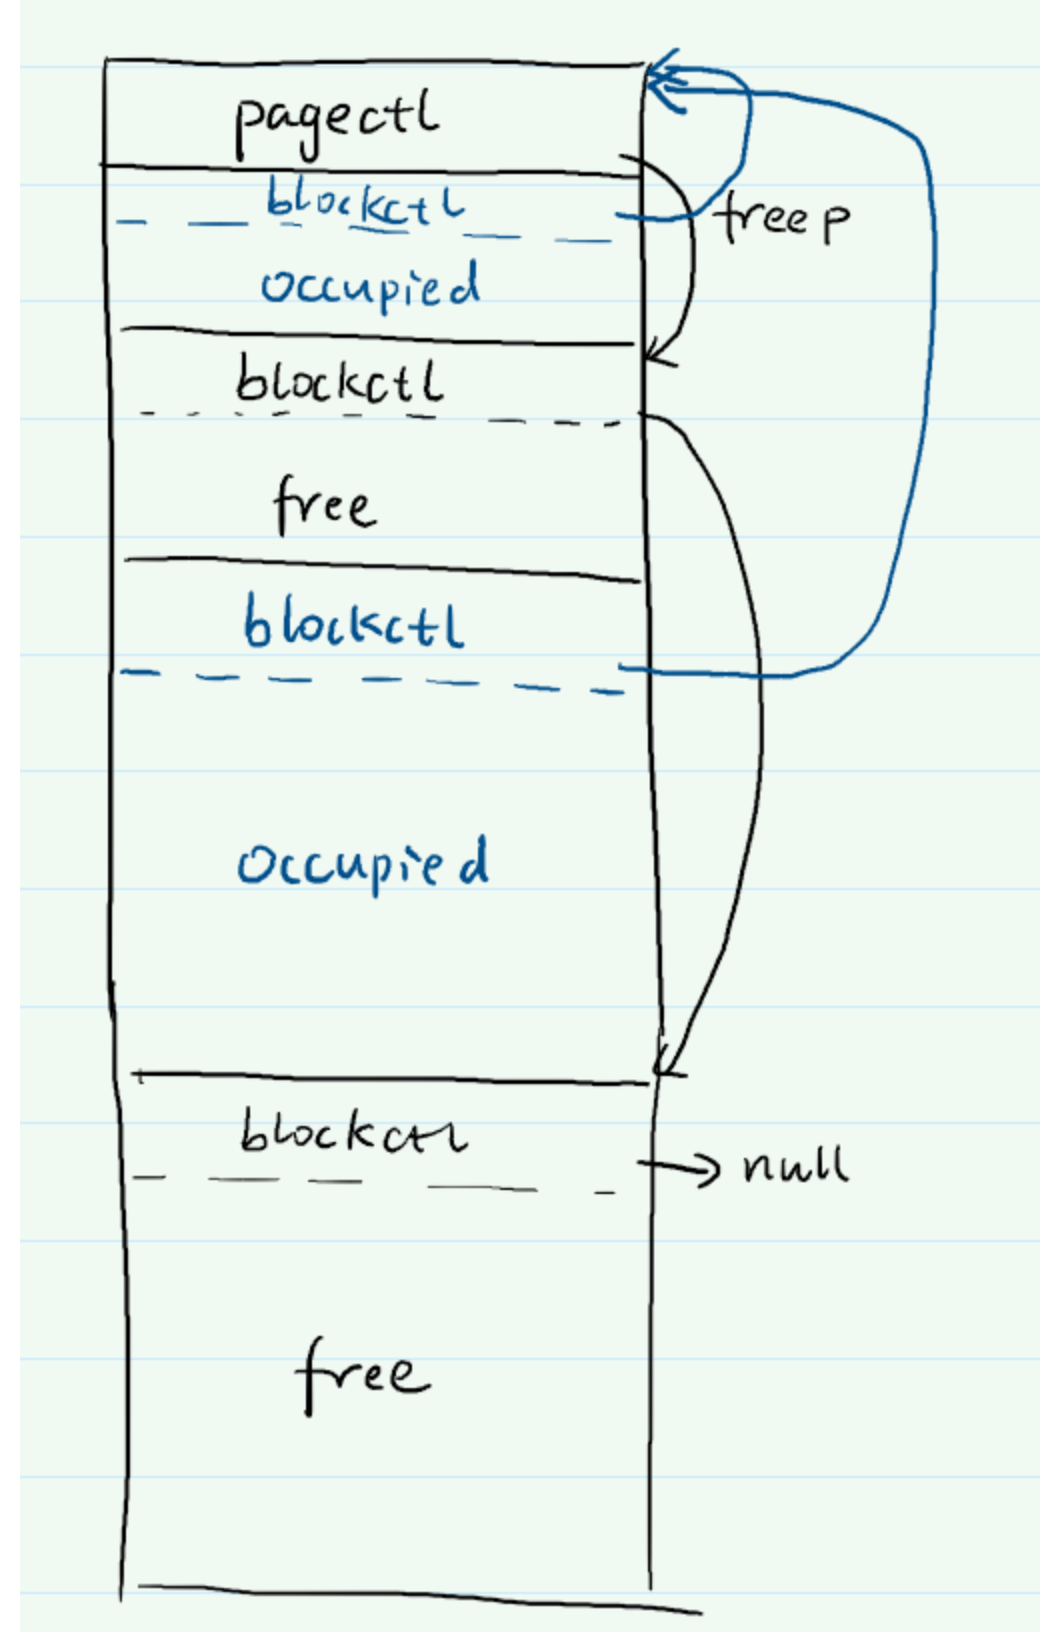 pagectl
blockctl
freep
occupied
blockctl
free
blockctl
occupied
blockctl
null
free